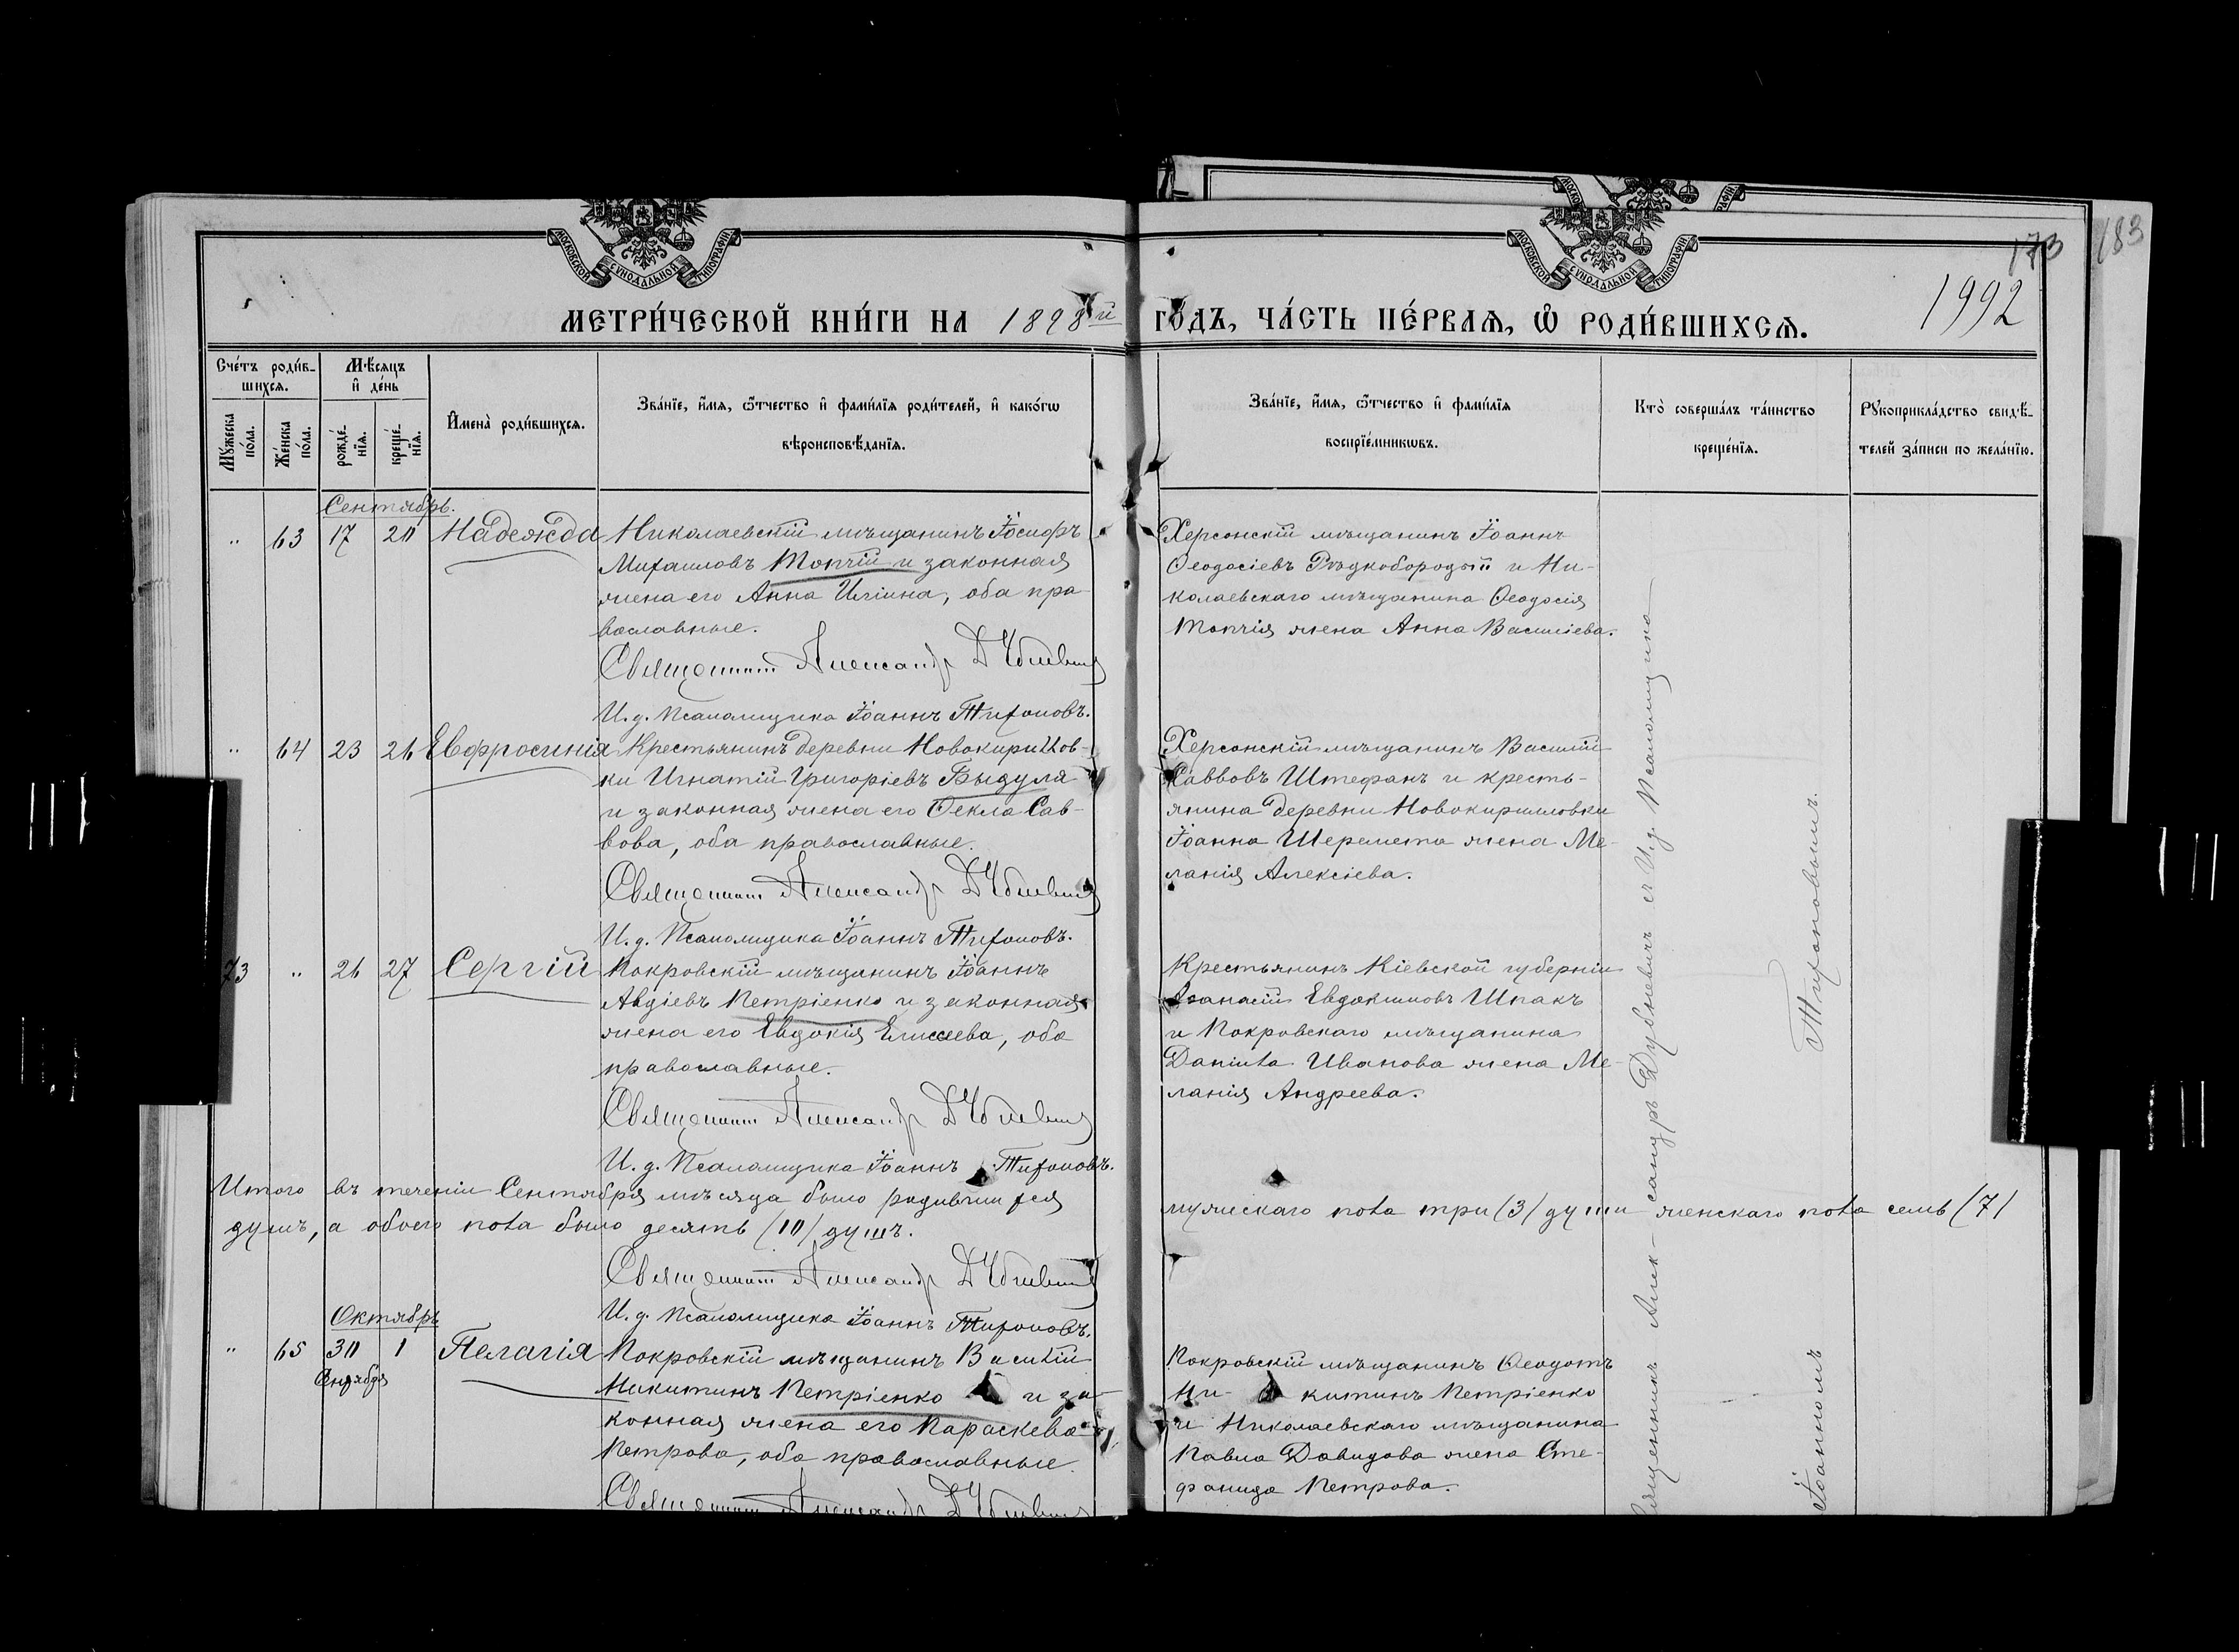 МОСКОВСКОЙ СѴНОДАЛЬНОЙ ТИПОГРАФІИ
МОСКОВСКОЙ СѴНОДАЛЬНОЙ ТИПОГРАФІИ
173
183
1992
МЕТРИ́ЧЕСКОЙ КНИ́ГИ НА 1898й ГО́ДЪ, ЧА́СТЬ ПЕ́РВАѦ, Ѽ РОДИ́ВШИХСѦ.
Сче́тъ роди́в-
шихсѧ.
Мꙋ́жеска по́ла.
Же́нска по́ла.
Мѣ́сяцъ
и҆ де́нь
рожде́-нїѧ.
креще́-нїѧ.
И҆мена̀ роди́вшихсѧ.
Зва́нїе, и҆́мѧ, ѻ҆́тчество и҆ фами́лїѧ роди́телей, и҆ како́гѡ
вѣроисповѣ́данїѧ.
Зва́нїе, и҆́мѧ, ѻ҆́тчество и҆ фами́лїѧ
воспрїе́мникѡвъ.
Кто̀ соверша́лъ та́инство
креще́нїѧ.
Рꙋкоприкла́дство свидѣ́-
телей за́писи по жела́нїю.
Сентябрь.
" 63 17 20 Надежда
Николаевскій мѣщанинъ Іосифъ
Михаиловъ Топчій и законная
жена его Анна Илiина, оба пра-
вославные.
Священникъ Александръ Дубневичъ
И. д. Псаломщика Іоаннъ Тихоновъ.
Херсонскій мѣщанинъ Іоаннъ
Ѳеодосіевъ Рѣдкобородый и Ни-
колаевскаго мѣщанина Ѳеодосія
Топчія жена Анна Василіева.
" 64 23 26 Евфросинія
Крестьянинъ деревни Новокирилов-
ки Игнатій Григоріевъ Быдуля
и законная жена его Ѳекла Сав-
вова, оба православные.
Священникъ Александръ Дубневичъ
И. д. Псаломщика Іоаннъ Тихоновъ.
Херсонскій мѣщанинъ Василій
Саввовъ Штефанъ и кресть-
янина деревни Новокириловки
Іоанна Шеремета жена Ме-
ланія Алексіева.
73 " 26 27 Сергій
Покровскій мѣщанинъ Іоаннъ
Авдіевъ Петріенко и законная
жена его Евдокія Елисеева, оба
православные.
Священникъ Александръ Дубневичъ
И. д. Псаломщика Іоаннъ Тихоновъ.
Крестьянинъ Кіевской губерніи
Аѳанасій Евдокимовъ Шпакъ
и Покровскаго мѣщанина
Даніила Иванова жена Ме-
ланія Андреева.
Итого въ теченіи Сентября мѣсяца было родившихся мужескаго пола три (3) души женскаго пола семь (7)
душъ, а обоего пола было десять (10) душъ.
Священникъ Александръ Дубневичъ
И. д. Псаломщика Іоаннъ Тихоновъ.
Октябрь
" 65 30 1 Пелагія
Сентября
Покровскій мѣщанинъ Василій
Никитинъ Петріенко и за-
конная жена его Параскева
Петрова, оба православные.
Священникъ Александръ Дубневичъ
Покровскій мѣщанинъ Ѳеодотъ
Ни- китинъ Петріенко
и Николаевскаго мѣщанина
Павла Давидова жена Сте-
фанида Петрова.
Священникъ Алек-сандръ Дубневичъ съ И. д. Псаломщика
Іоанномъ Тихоновымъ.